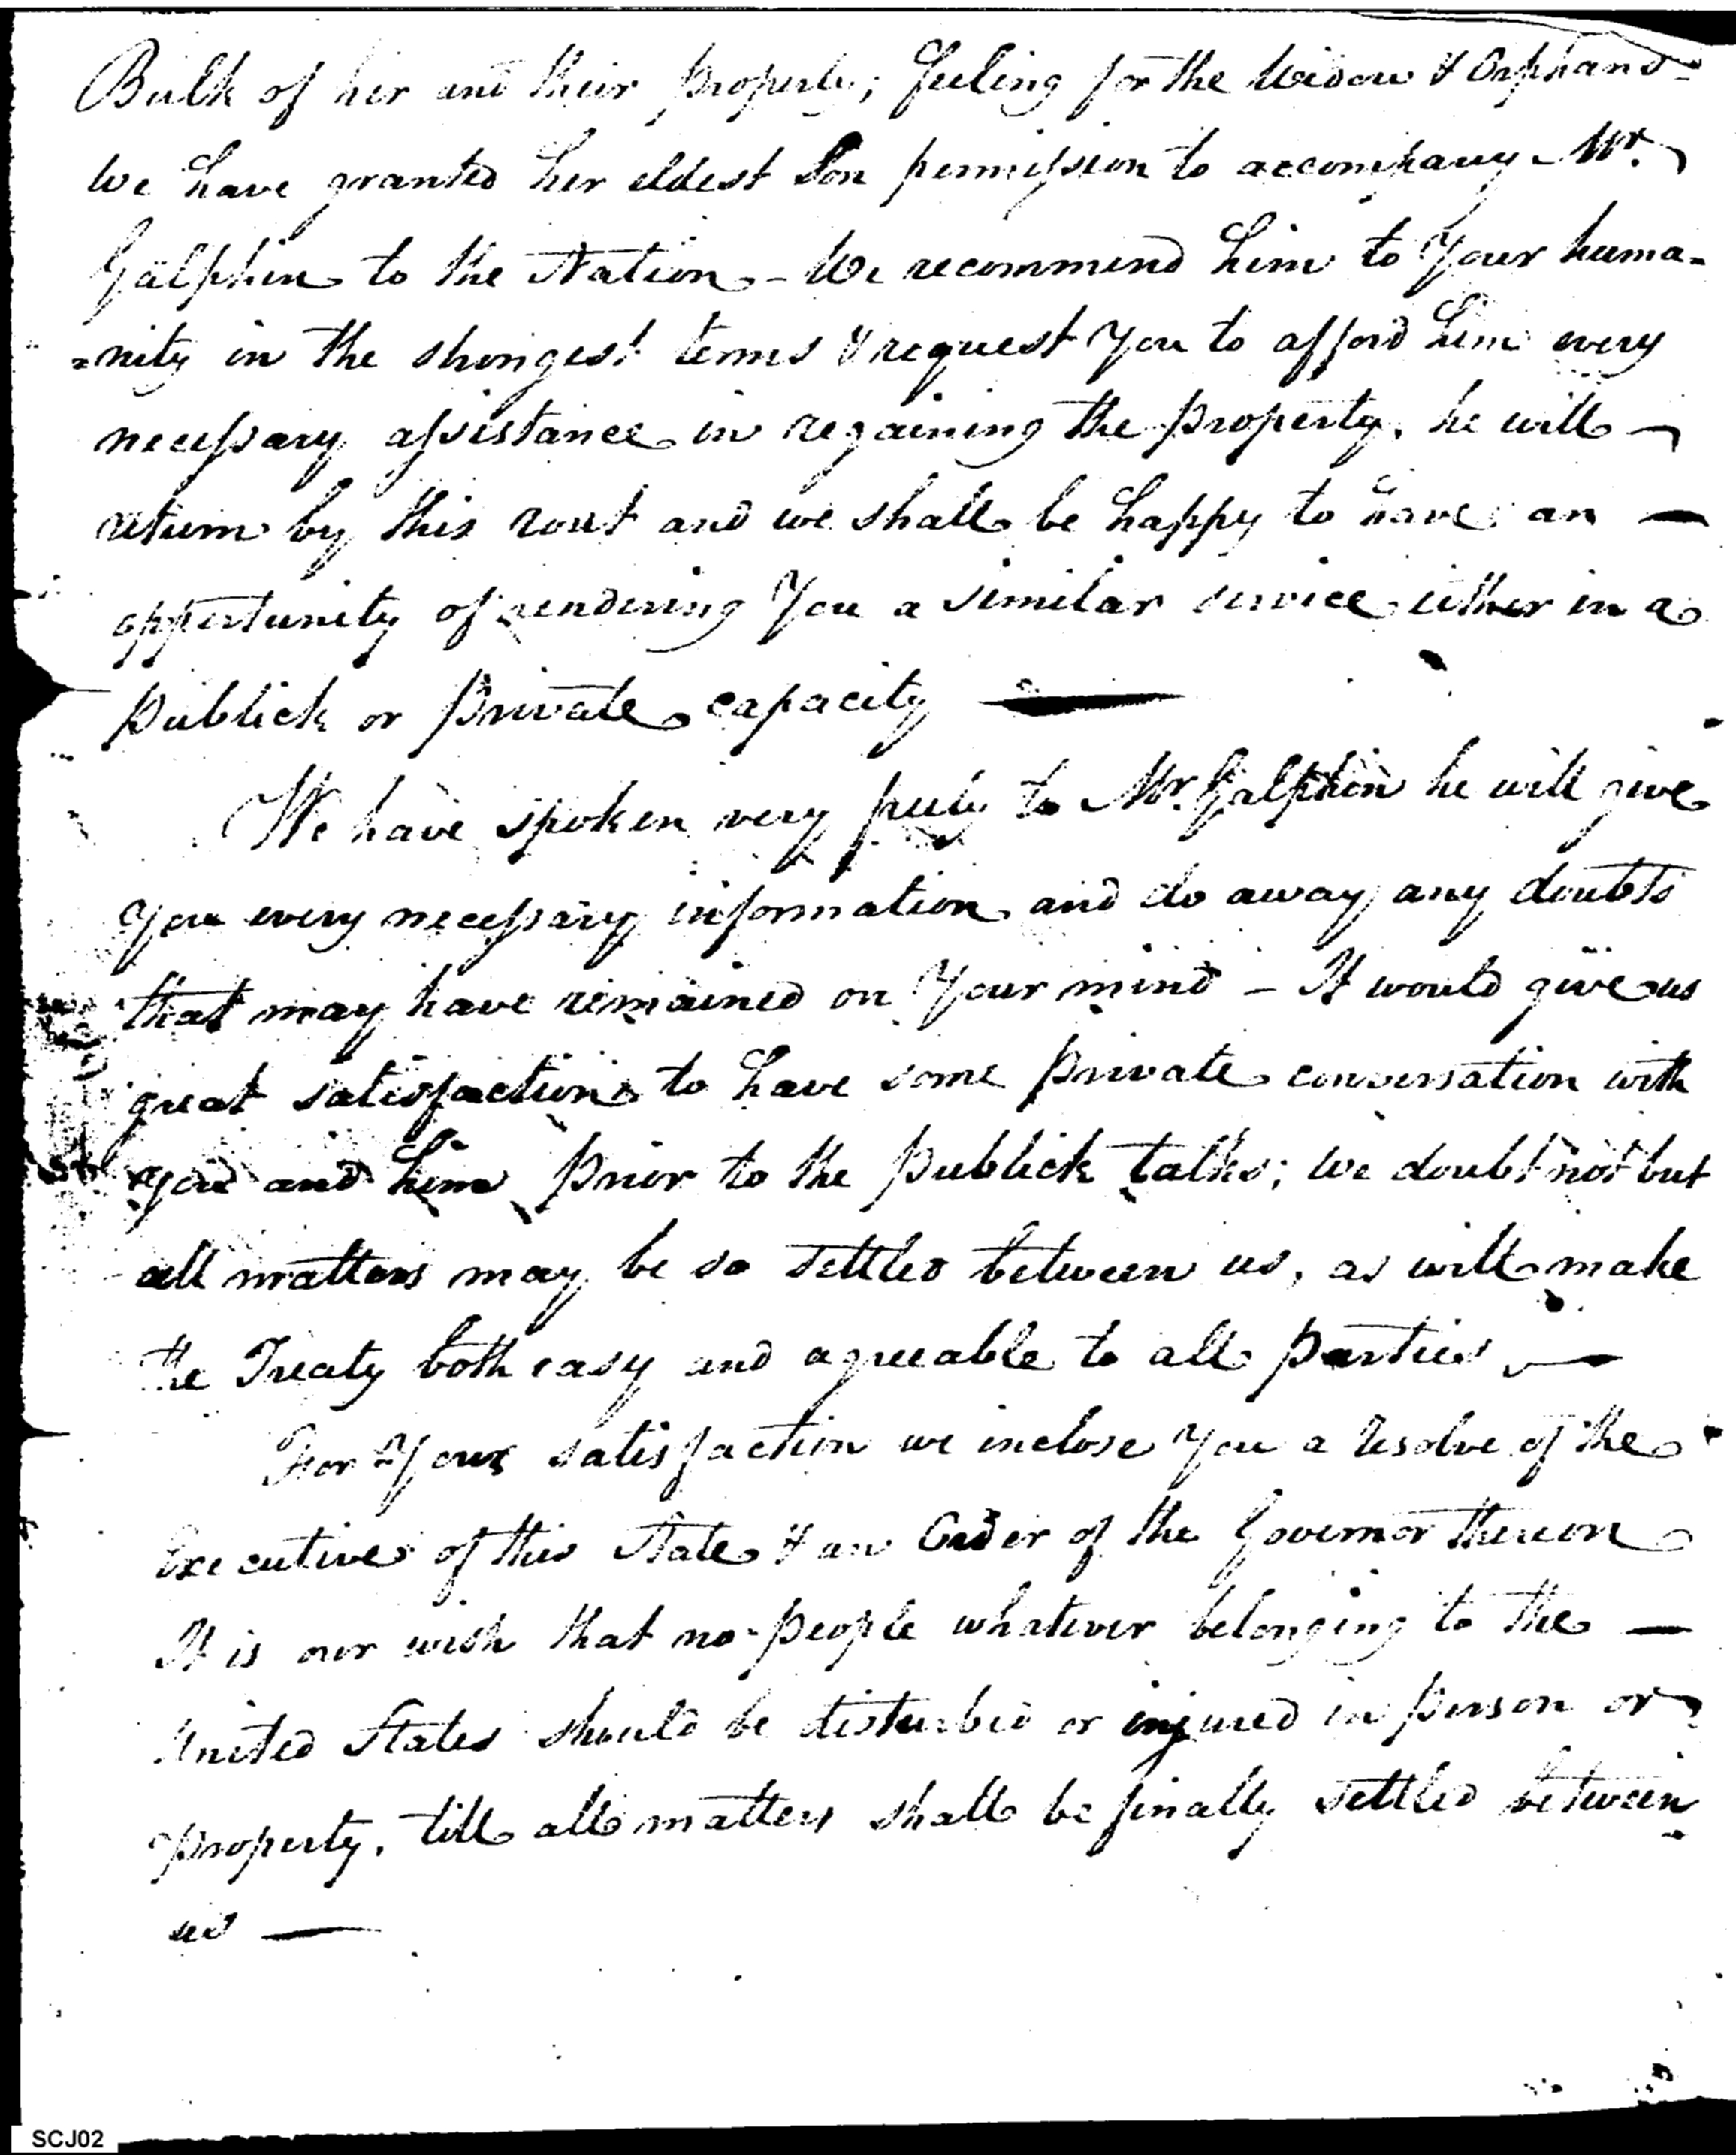 Bulk of her and their property; feeling for the Widow & Orphans
we have granted her eldest Son permission to accompany Mr.
Galphin to the Nation - We recommend him to Your huma-
=nity in the strongest terms & request You to afford him every
necessary assistance in regaining the property, he will
return by this rout and we shall be happy to have an
oppertunity of rendering You a similar service either in a
publick or private capacity
We have spoken very freely to Mr. Galphin he will give
you every necessary information and do away any doubts
that may have remained on Your mind - It would give us
great satisfaction to have some private conversation with
you and him prior to the publick talks; we doubt not but
all matters may be so settled between us, as will make
the Treaty both easy and agreeable to all parties
For Your satisfaction we inclose You a resolve of the
Executive of this State & an Order of the Governor thereon
It is our wish that no people whatever belonging to the
United States should be disturbed or injured in person or
property, till all matters shall be finally settled between
us
SCJ02